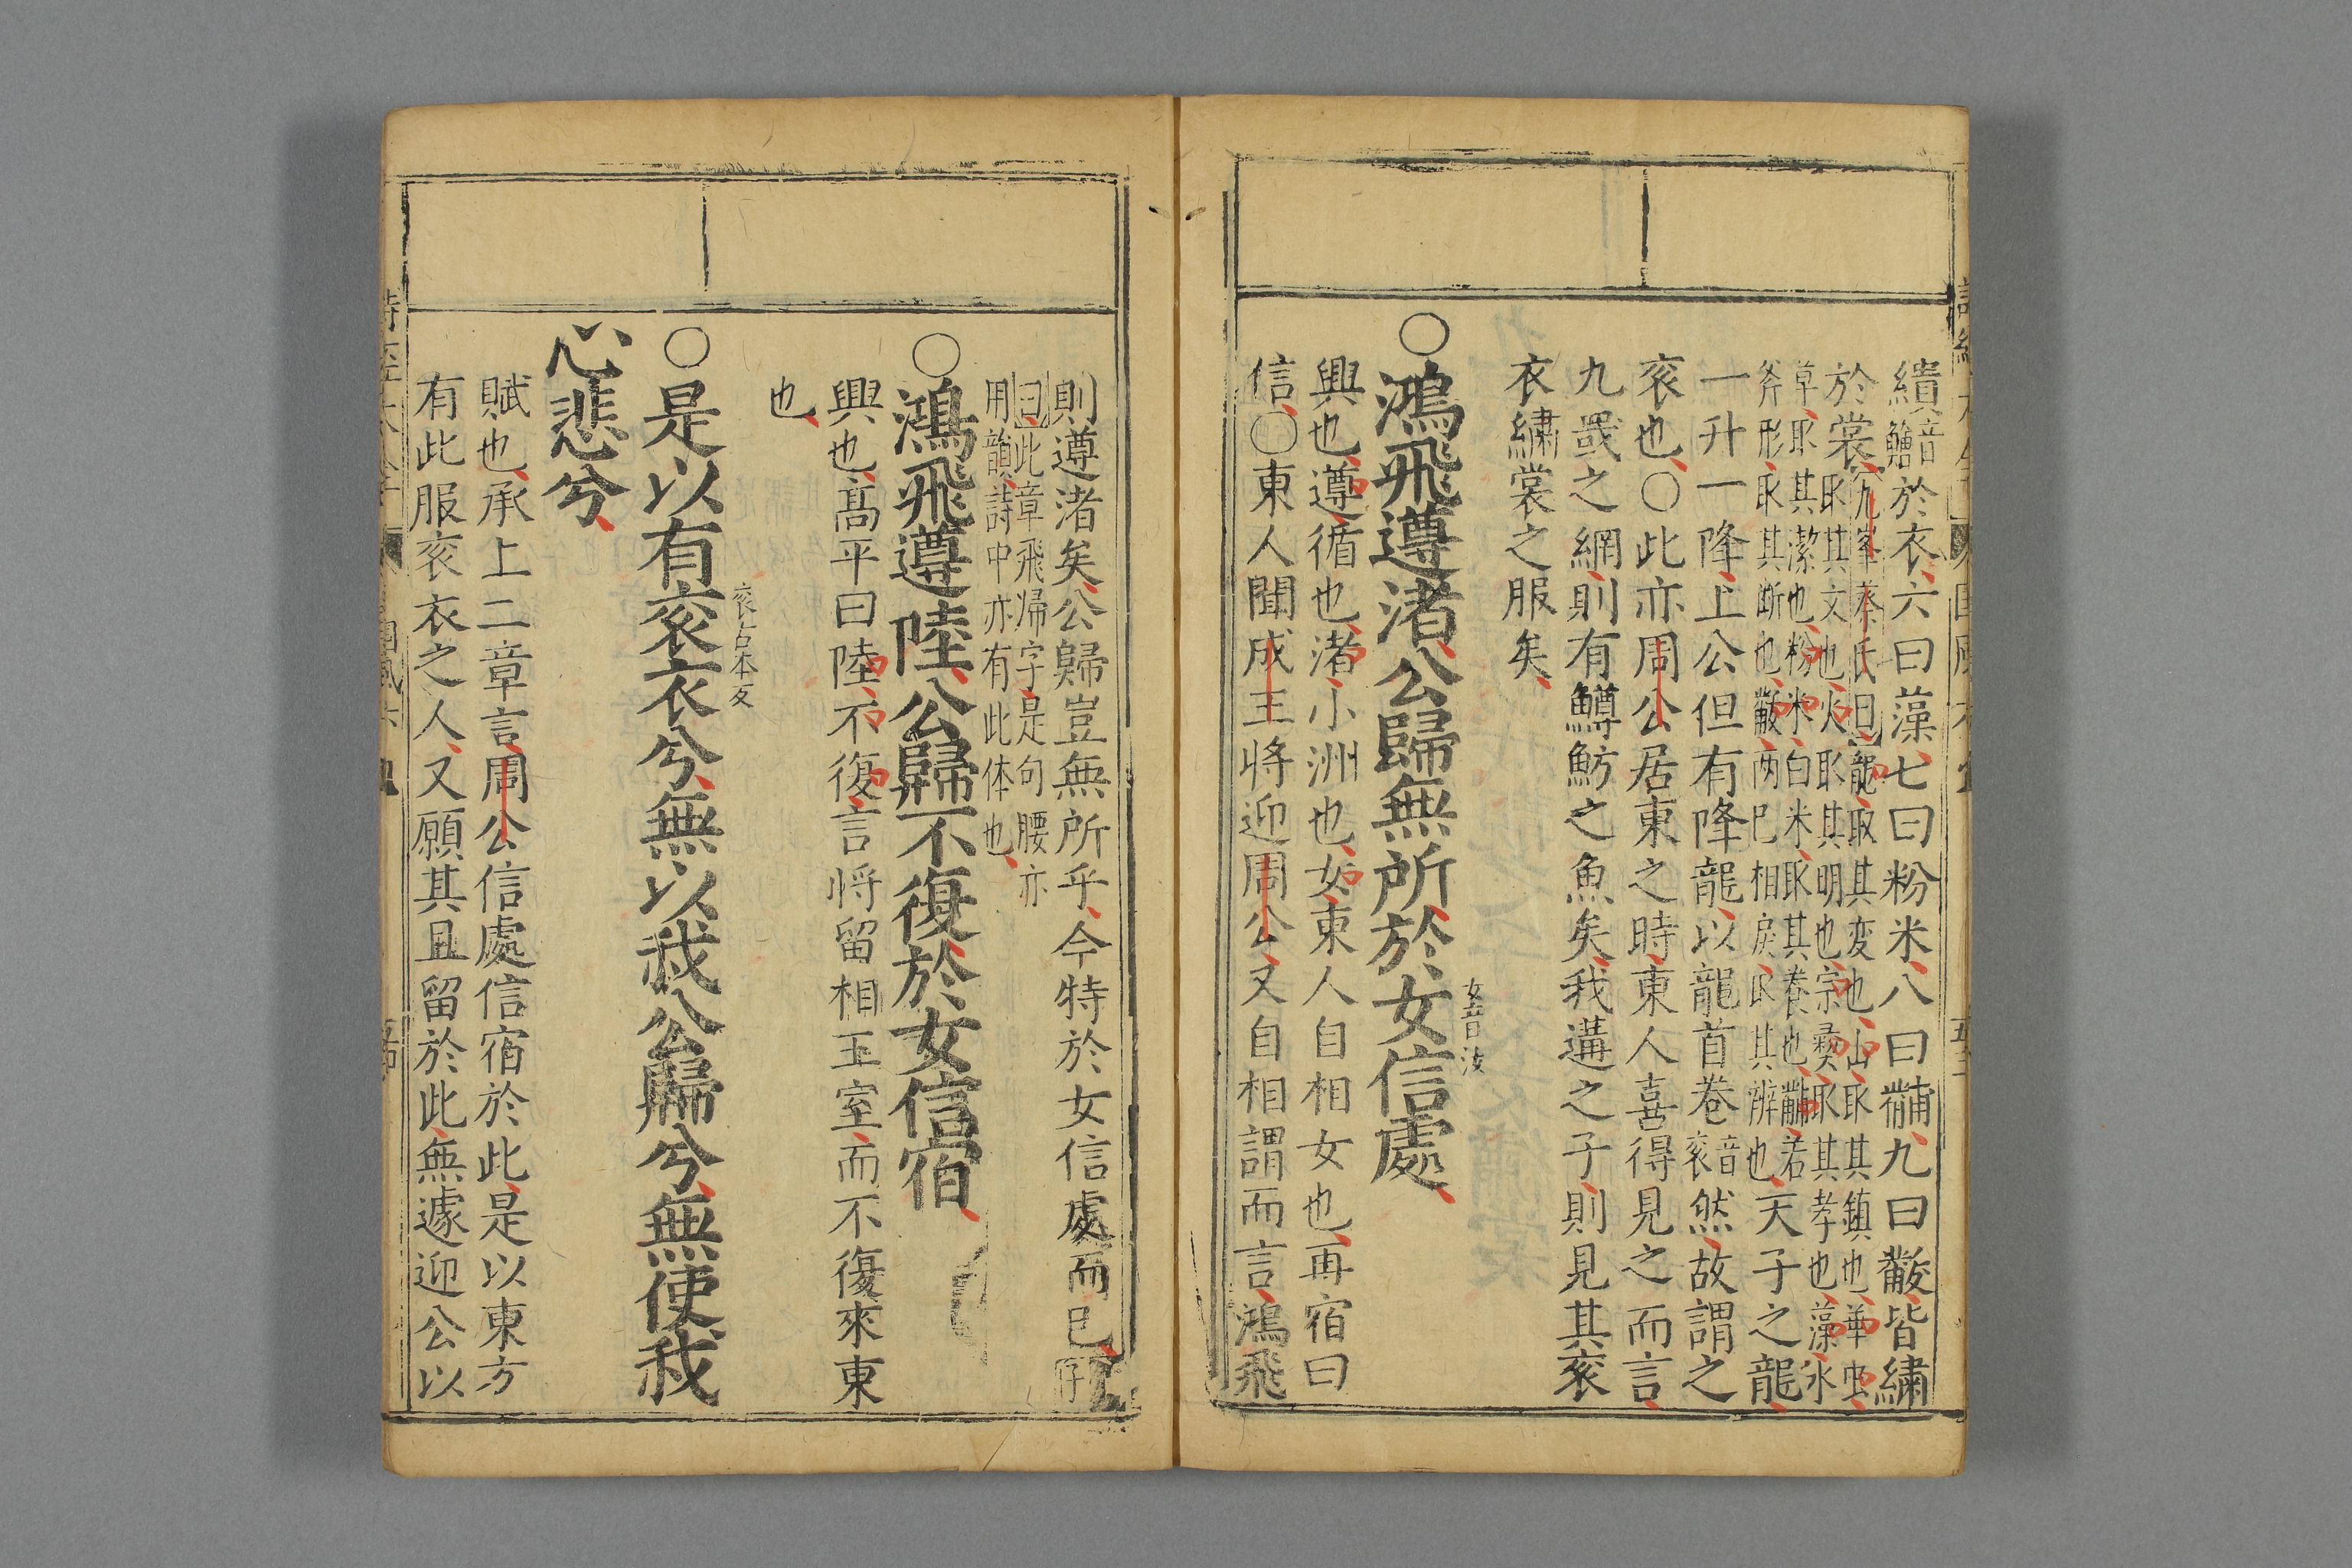 繢音鱠於衣六曰藻七曰粉米八曰黼九曰黻皆繡
於裳九峯蔡氏曰龍取其変也山取其鎮也華虫
取其文也火取其明也宗彛取其孝也藻水
草取其潔也粉米白米取其養也黼若
斧形取其断也黻两巳相戾取其辨也天子之龍
一升一降上公但有降龍以龍首巻音衮然故謂之
衮也○此亦周公居東之時東人喜得見之而言
九罭之網則有鱒魴之魚矣我遘之子則見其衮
衣繡裳之服矣
女音汝
○鴻飛遵渚公歸無所於女信處
興也遵循也渚小洲也女東人自相女也再宿曰
信○東人聞成王將迎周公又自相謂而言鴻飛
則遵渚矣公歸豈無所乎今特於女信處而已
曰此章飛帰字是句腰亦
用韻詩中亦有此体也
○鴻飛遵陸公歸不復於女信宿
興也髙平曰陸不復言将留相王室而不復來東
也
衮古本反
○是以有衮衣兮無以我公歸兮無使我
心悲兮
賦也承上二章言周公信處信宿於此是以東方
有此服衮衣之人又願其且留於此無遽迎公以